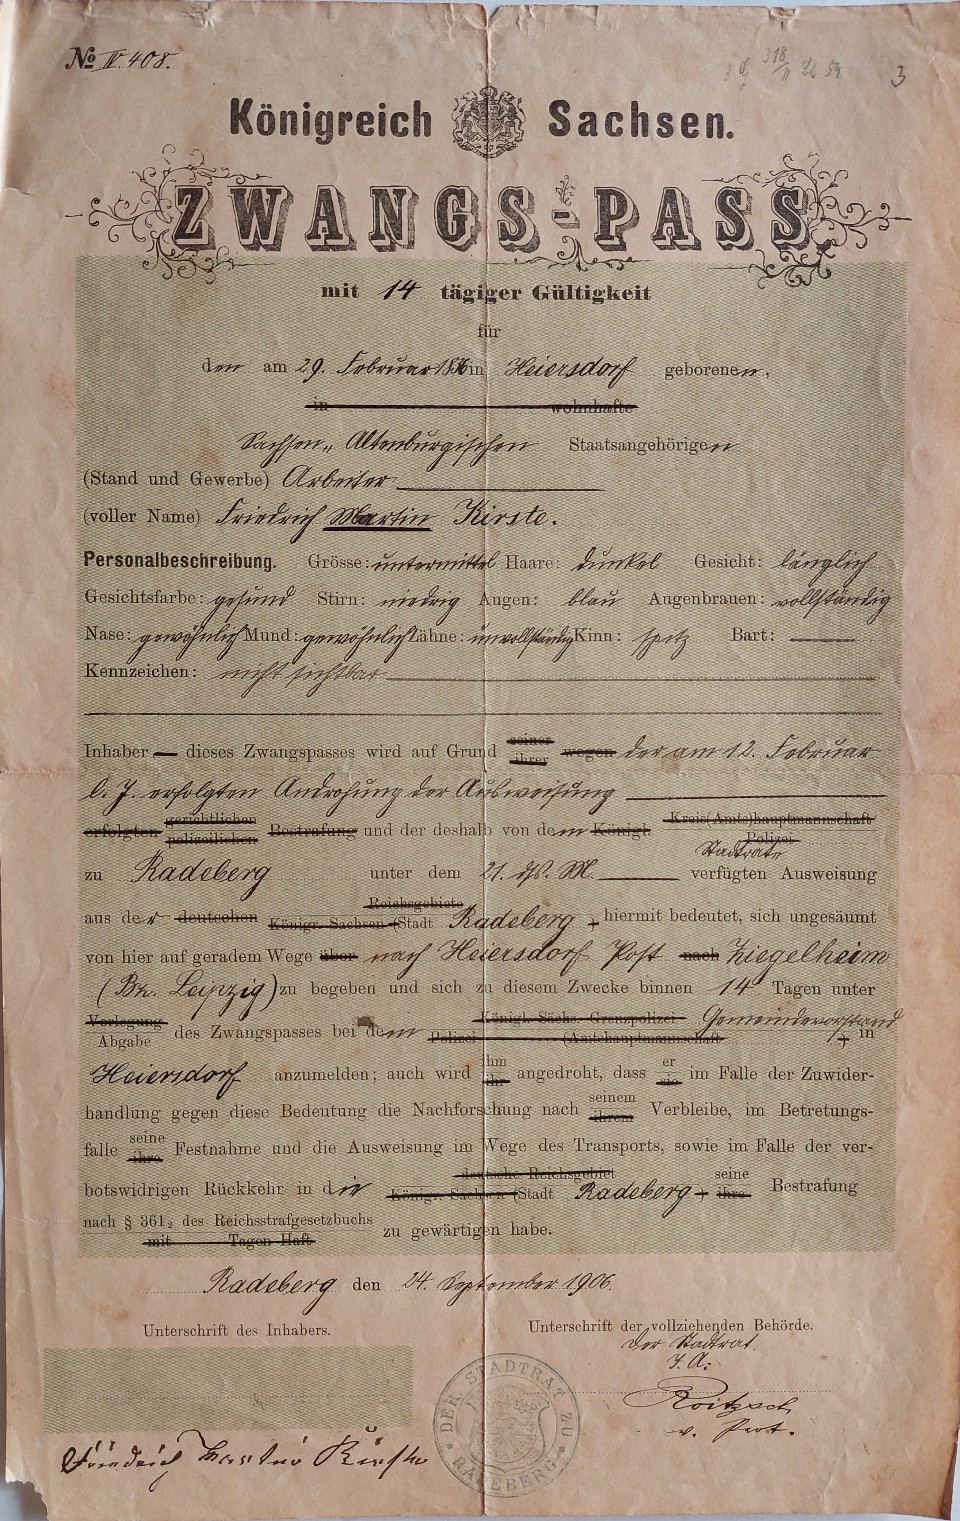 No IV. 408.
3
Königreich Sachsen.
ZWANGS-PASS
mit 14 tägiger Gültigkeit
für
den am 29. Februar in Heiersdorf geborenen,
in wohnhafte
Sachsen-Altenburgischen Staatsangehörigen
(Stand und Gewerbe) Arbeiter
(voller Name) Friedrich Martin Kirste.
Personalbeschreibung. Grösse: untermittel Haare: dunkel Gesicht: länglich
Gesichtsfarbe: gesund Stirn: niedrig Augen: blau Augenbrauen: vollständig
Nase: gewöhnlich Mund: gewöhnlich Zähne: unvollständig Kinn: spitz Bart:
Kennzeichen: nicht sichtbar
Inhaber dieses Zwangspasses wird auf Grund seiner ihrer wegen der am 12. Februar
l. J. erfolgten Androhung der Ausweisung
erfolgten gerichtlichen polizeilichen Bestrafung und der deshalb von dem Königl. Kreis(Amts)hauptmannschaft Polizei
Stadtrate
zu Radeberg unter dem 21. ds. M. verfügten Ausweisung
aus der deutschen Reichsgebiete Königr. Sachsen (Stadt Radeberg) hiermit bedeutet, sich ungesäumt
von hier auf geradem Wege über nach Heiersdorf Post nach Ziegelheim
(Bz. Leipzig) zu begeben und sich zu diesem Zwecke binnen 14 Tagen unter
Vorlegung Abgabe des Zwangspasses bei dem Königl. Sächs. Grenzpolizei Polizei (Amtshauptmannschaft Gemeindevorstand ) in
Heiersdorf anzumelden; auch wird ihm ihr angedroht, dass er sie im Falle der Zuwider-
handlung gegen diese Bedeutung die Nachforschung nach seinem ihrem Verbleibe, im Betretungs-
falle seine ihre Festnahme und die Ausweisung im Wege des Transports, sowie im Falle der ver-
botswidrigen Rückkehr in die deutsche Reichsgebiet Königr. Sachsen (Stadt Radeberg) seine ihre Bestrafung
nach § 361₂ des Reichsstrafgesetzbuchs mit Tagen Haft zu gewärtigen habe.
Radeberg den 24. September 1906.
Unterschrift des Inhabers. Unterschrift der vollziehenden Behörde.
Der Stadtrat.
I. A.
Roitzsch
Friedrich Martin Kirste
DER STADTRAT ZU RADEBERG